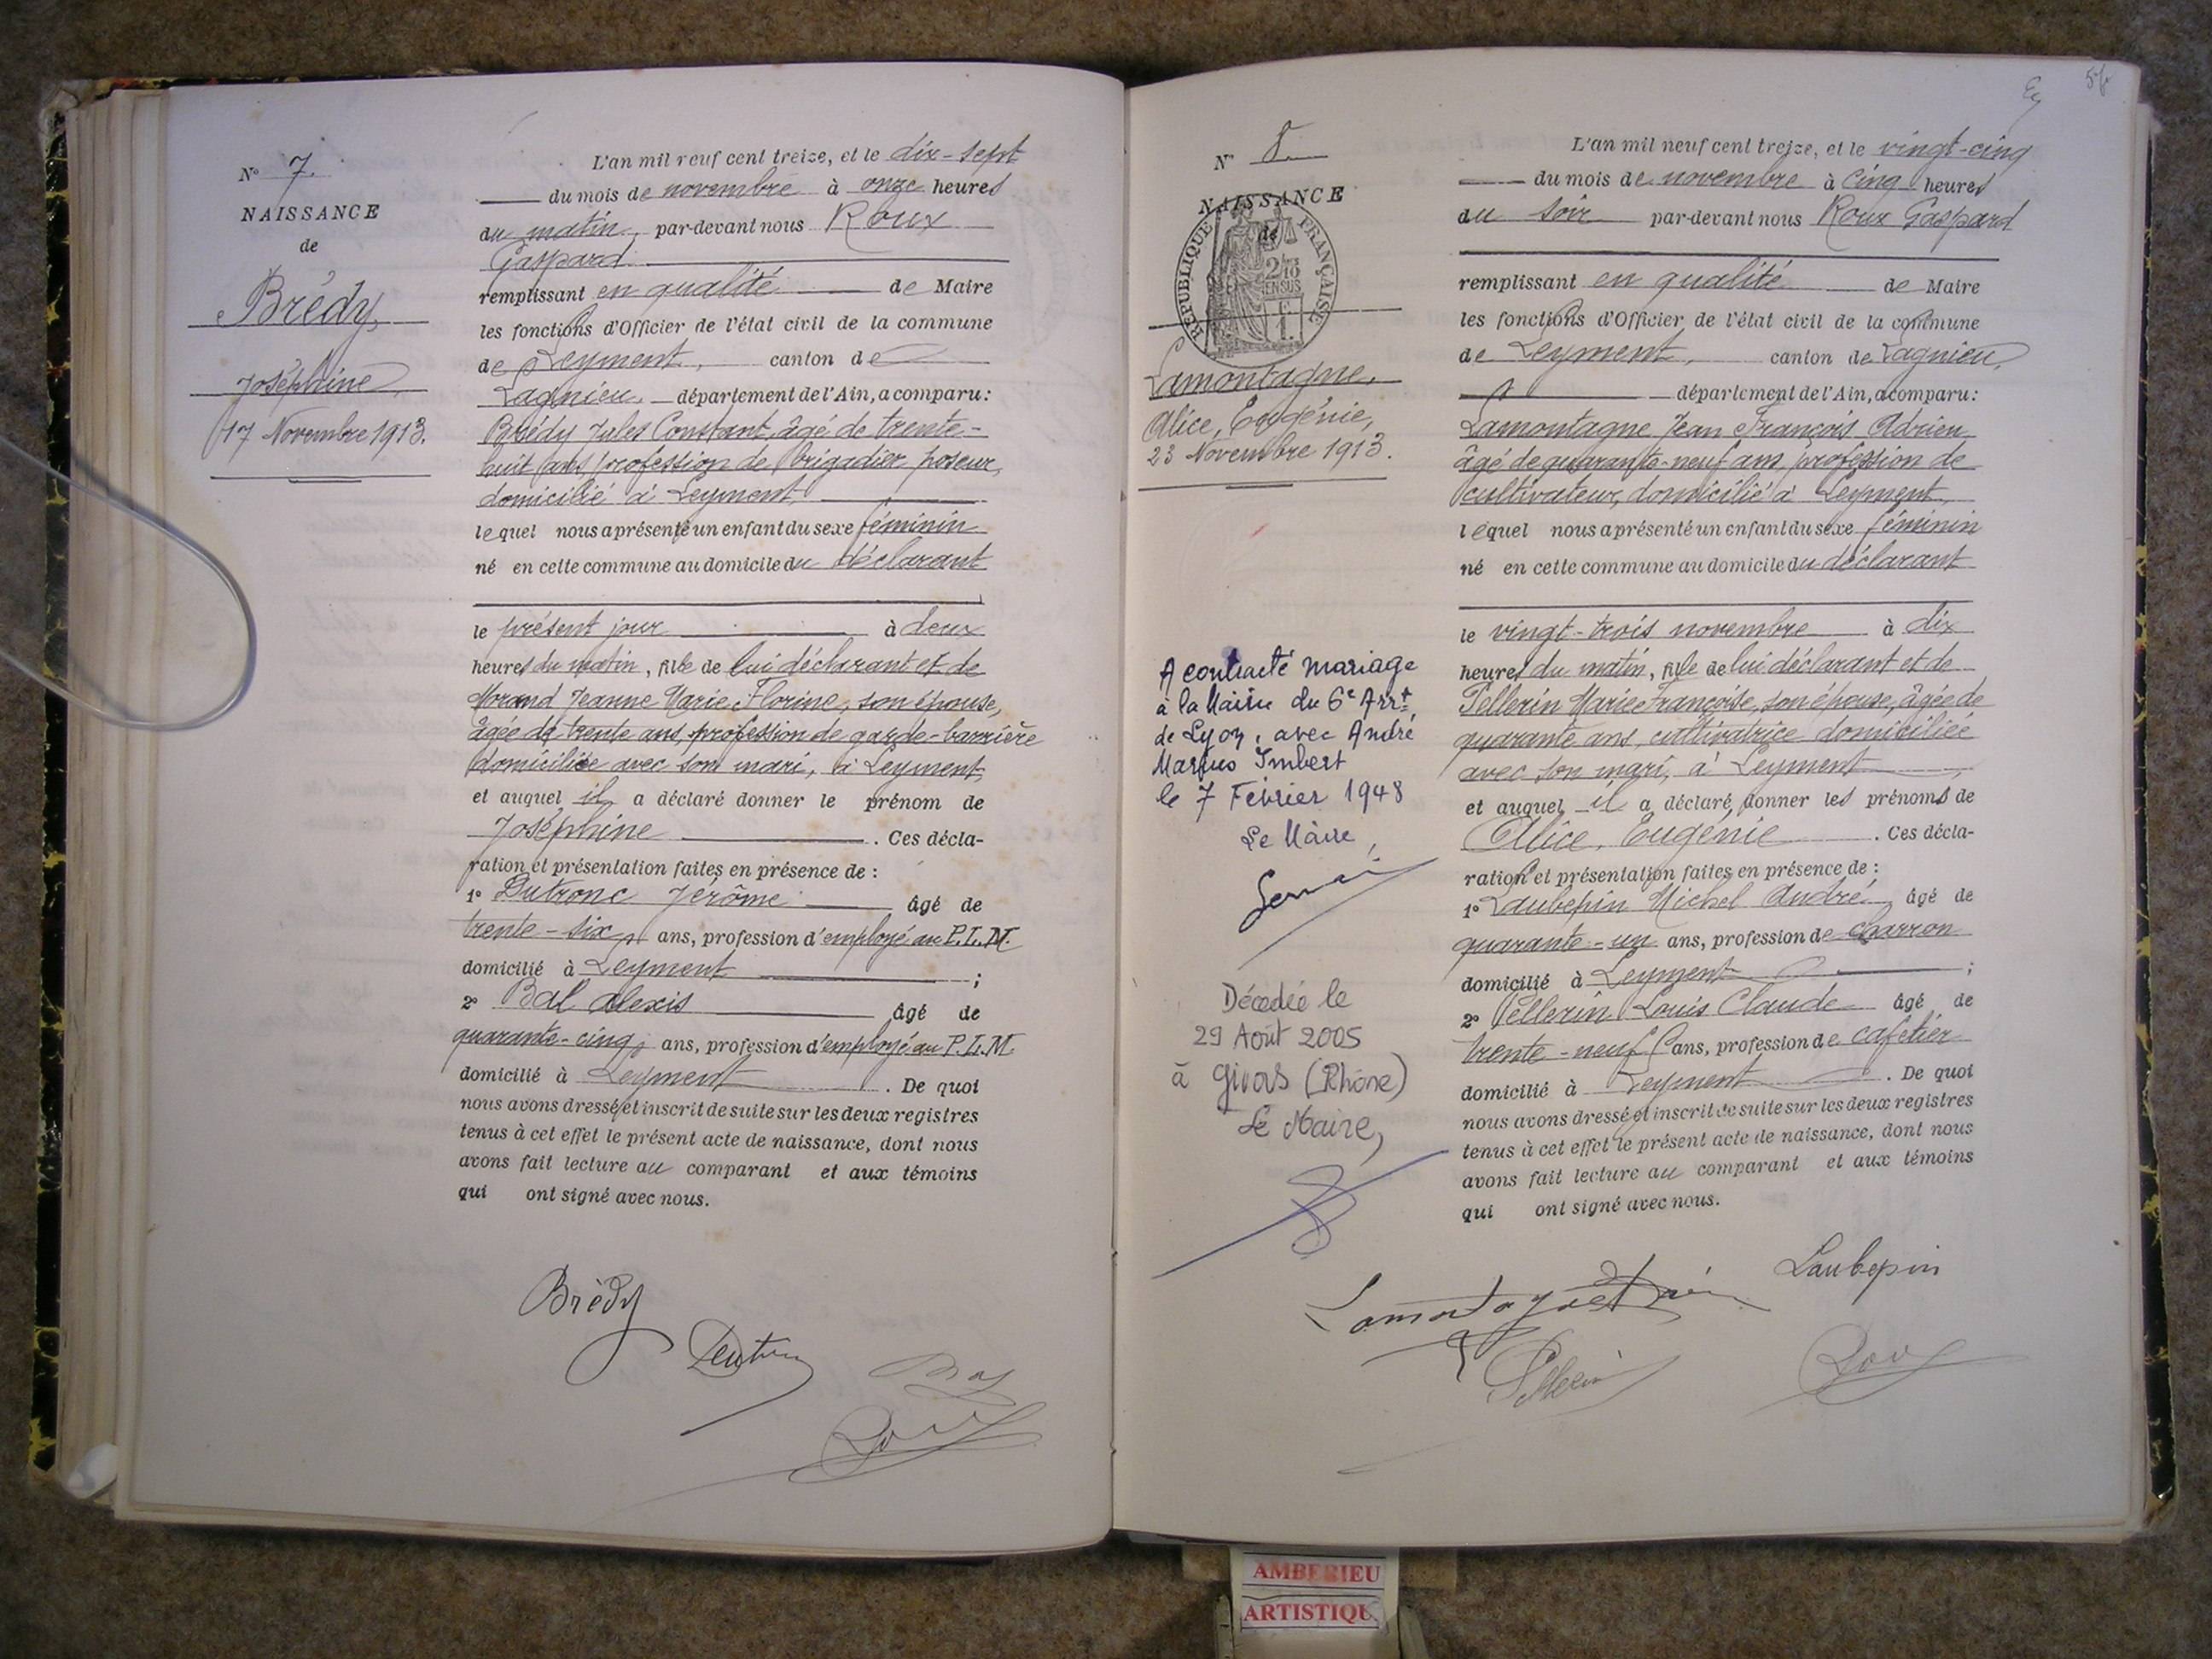 N° 7.
NAISSANCE
de
Brédy,
Joséphine
17 Novembre 1913.
L'an mil neuf cent treize, et le dix-sept
du mois de novembre à onze heures
du matin, par-devant nous Roux
Gaspard
remplissant en qualité de Maire
les fonctions d'Officier de l'état civil de la commune
de Leyment, canton de
Lagnieu, département de l'Ain, a comparu:
Brédy Jules Constant, âgé de trente-
huit ans, profession de brigadier poseur,
domicilié à Leyment
lequel nous a présenté un enfant du sexe féminin
né en cette commune au domicile du déclarant
le présent jour à deux
heures du matin, fille de lui déclarant et de
Morand Jeanne Marie Florine, son épouse,
âgée de trente ans, profession de garde-barrière
domiciliée avec son mari, à Leyment,
et auquel il a déclaré donner le prénom de
Joséphine. Ces décla-
ration et présentation faites en présence de :
1° Dutronc Jérôme âgé de
trente-six ans, profession d'employé au P.L.M.
domicilié à Leyment ;
2° Bal Alexis âgé de
quarante-cinq ans, profession d'employé au P.L.M.
domicilié à Leyment. De quoi
nous avons dressé et inscrit de suite sur les deux registres
tenus à cet effet le présent acte de naissance, dont nous
avons fait lecture au comparant et aux témoins
qui ont signé avec nous.
Brédy
N° 8
NAISSANCE
de
RÉPUBLIQUE FRANÇAISE
2/10
EN SUS
Lamontagne,
Alice, Eugénie,
23 Novembre 1913.
A contracté mariage
à la Mairie du 6e Arrt
de Lyon, avec André
Marius Imbert
le 7 Février 1948
Le Maire,
Décédée le
29 Août 2005
à Givors (Rhône)
Le Maire,
L'an mil neuf cent treize, et le vingt-cinq
du mois de novembre à cinq heures
du soir par-devant nous Roux Gaspard
remplissant en qualité de Maire
les fonctions d'Officier de l'état civil de la commune
de Leyment, canton de Lagnieu,
département de l'Ain, a comparu:
Lamontagne Jean François Adrien
âgé de quarante-neuf ans, profession de
cultivateur, domicilié à Leyment,
lequel nous a présenté un enfant du sexe féminin
né en cette commune au domicile du déclarant
le vingt-trois novembre à dix
heures du matin, fille de lui déclarant et de
Pellerin Marie Françoise, son épouse, âgée de
quarante ans, cultivatrice domiciliée
avec son mari, à Leyment,
et auquel il a déclaré donner les prénoms de
Alice, Eugénie. Ces décla-
ration et présentation faites en présence de :
1° Laubepin Michel André âgé de
quarante-un ans, profession de charron
domicilié à Leyment ;
2° Pellerin Louis Claude âgé de
trente-neuf ans, profession de cafetier
domicilié à Leyment. De quoi
nous avons dressé et inscrit de suite sur les deux registres
tenus à cet effet le présent acte de naissance, dont nous
avons fait lecture au comparant et aux témoins
qui ont signé avec nous.
Laubepin
Pellerin
Roux
AMBERIEU
ARTISTIQU